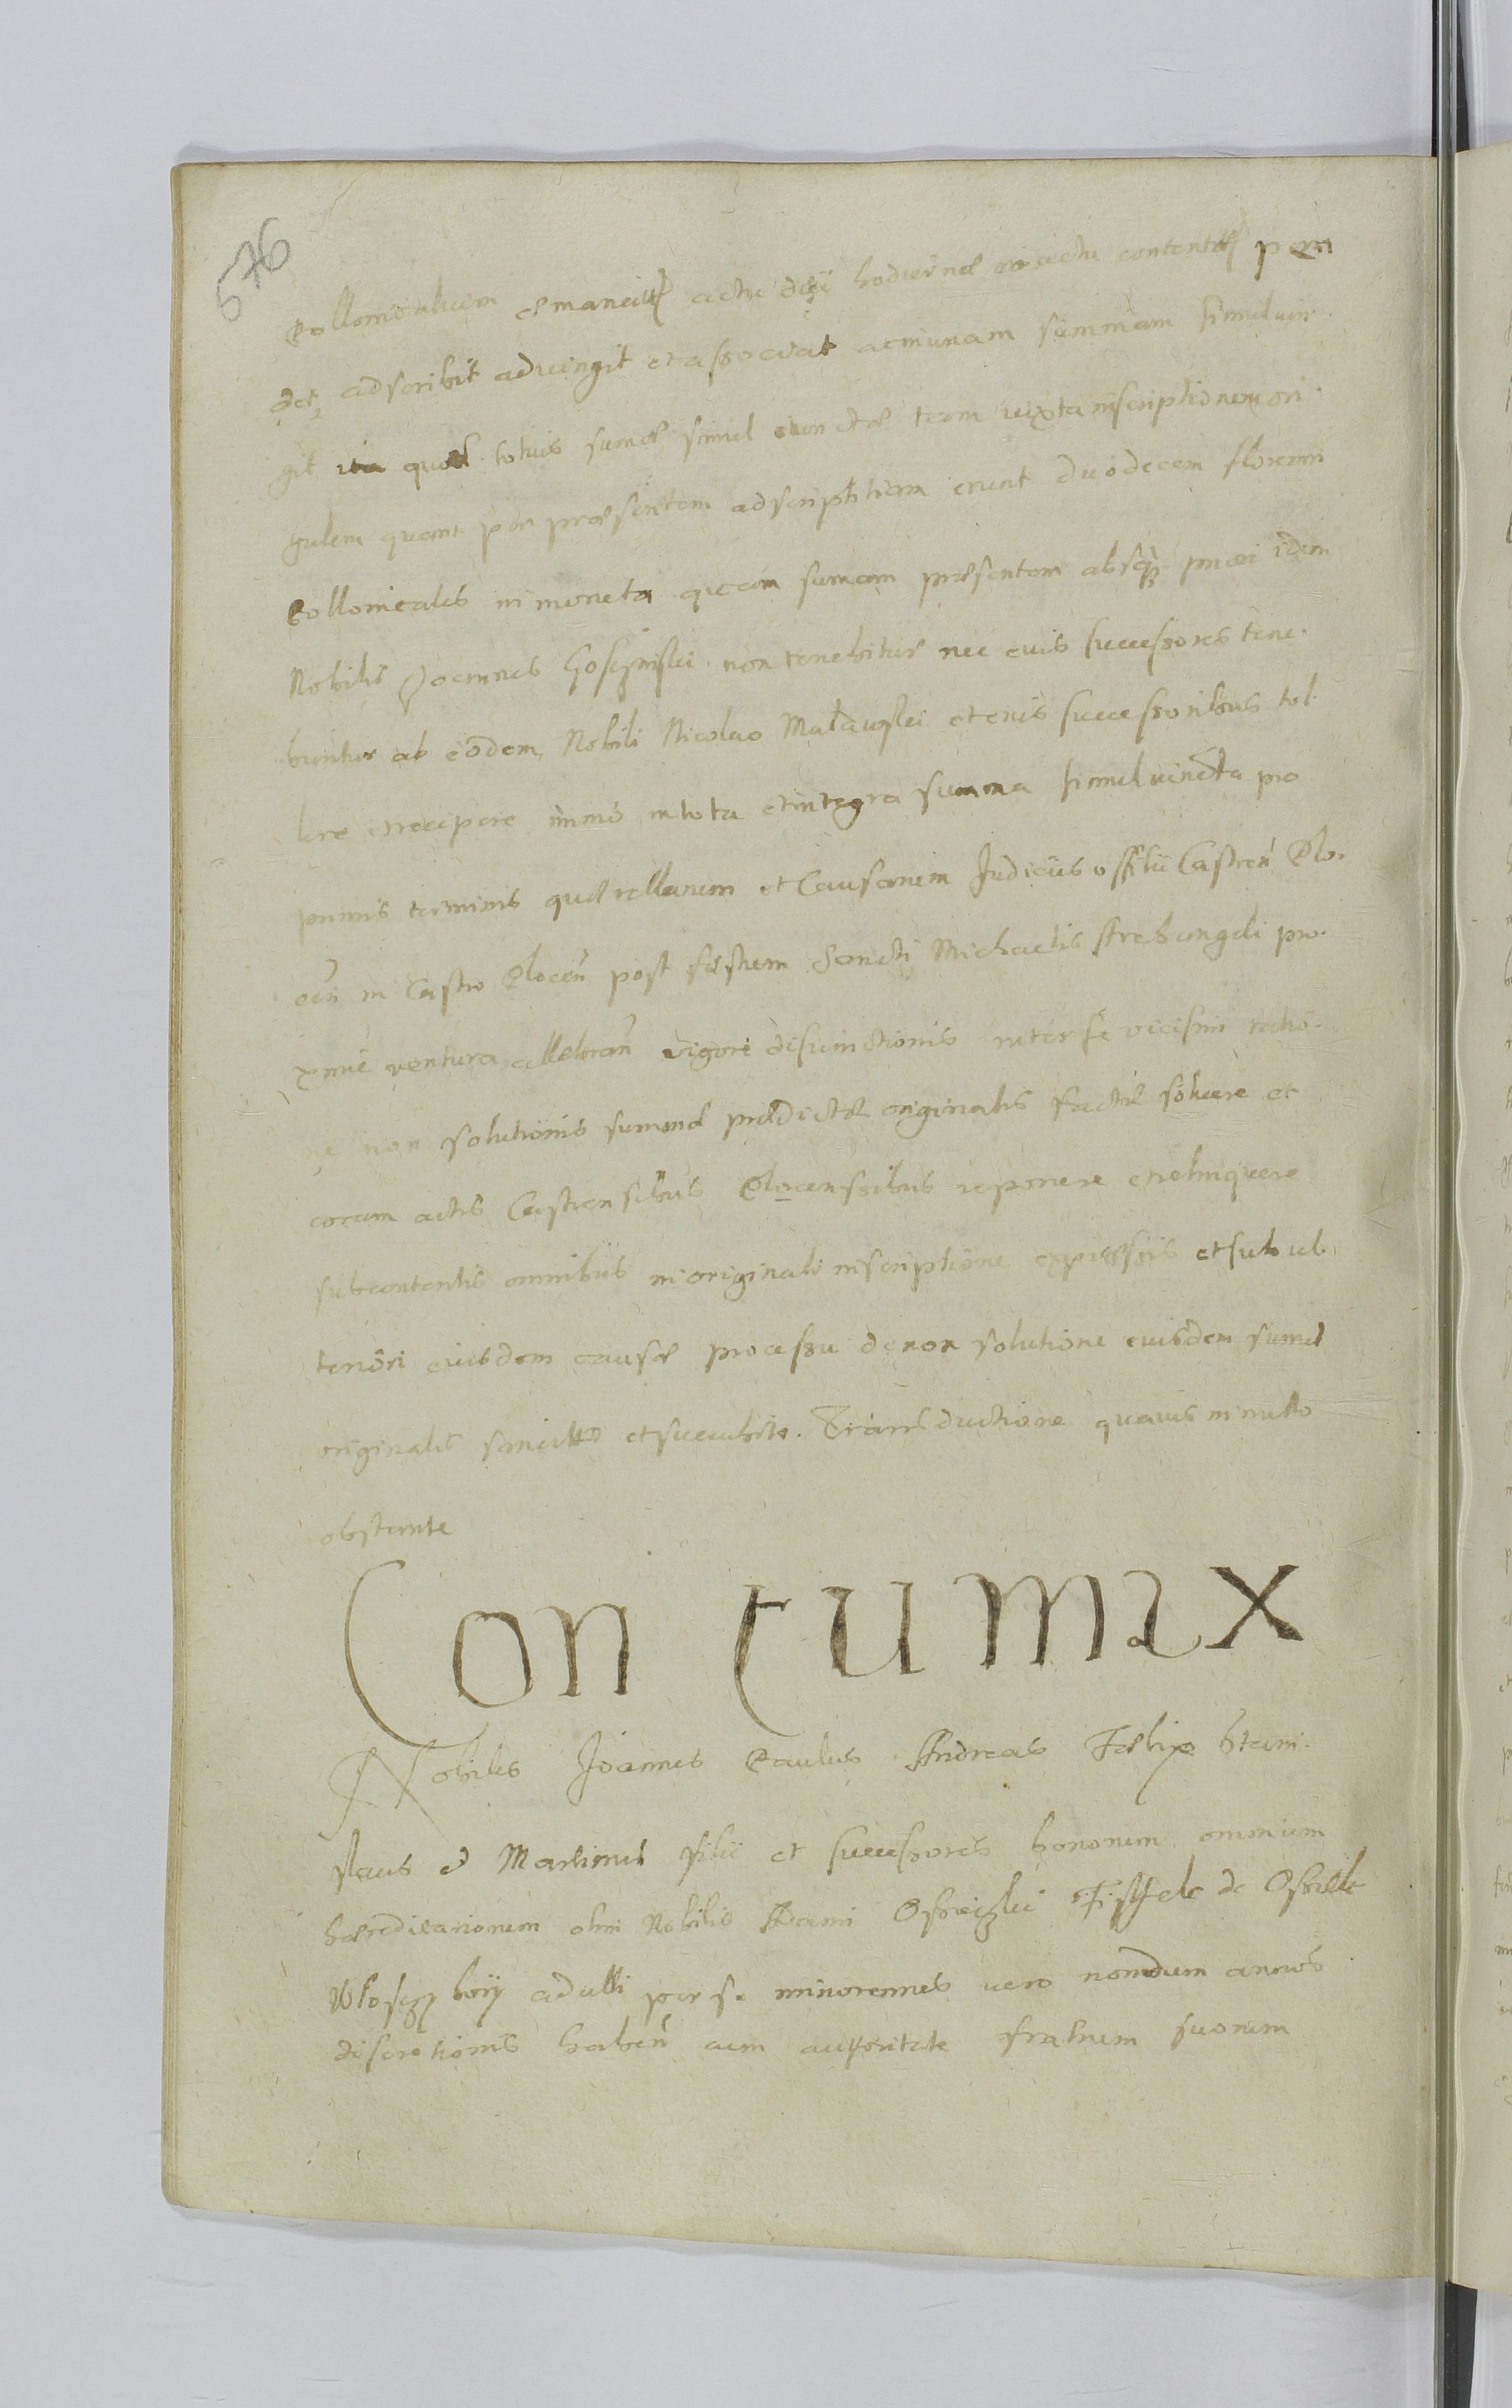 576
Pollonicalium actu hodierno contentas
adscribit adiungit et associat ac in unam summam simul iun-
git ita quod totius sumæ simul iunctæ tam iuxta inscriptionem ori-
gulem quam per præsentem adscriptitiam erunt duodecem floreni
Pollonicales in moneta quam sumam præsentem absque priori idem
Nobilis Joannes non tenebitur nec euis successores tene-
buntur ab eodem Nobili Nicolao et euis successoribus tol-
lere et recipere immo in tota et integra summa simul iuncta pro
primis terminis quærellarum et Causarum Judiciis offitii Castren Plo-
cen in Castro Plocen post festum Sancti Michaelis Archangeli pro-
xime ventura celebran vigore disiunctionis inter se vicisim ratio-
ne non solutionis summæ prædictæ originalis factæ soluere et
coram actis Castrensibus Plocensibus reponere et relinquere
sub contentis omnibus in originali inscriptione expressis et sub ul-
teriori euisdem causæ processu de non solutione euisdem sumæ
originalis sancito et succubito. Transductione quauis in nullo
obstante
Contumax
Nobiles Joannes Paulus Andreas Fælix Stani-
slaus et Martinus filii et successores bonorum omnium
hæreditariorum olim Nobilis Adami de
adulti per se minorennes vero nondum annos
discretionis haben cum authoritate fratrum suorum